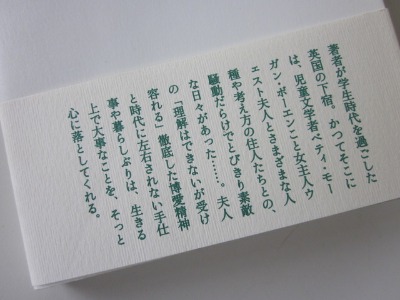 著者が学生時代を過ごした
英国の下宿。かつてそこに
は、児童文学者ベティ・モー
ガン・ボーエンこと女主人ウ
ェスト夫人とさまざまな人
種や考え方の住人たちとの、
騒動だらけでとびきり素敵
な日々があった……。夫人
の「理解はできないが受け
容れる」徹底した博愛精神
と時代に左右されない手仕
事や暮らしぶりは、生きる
上で大事なことを、そっと
心に落としてくれる。